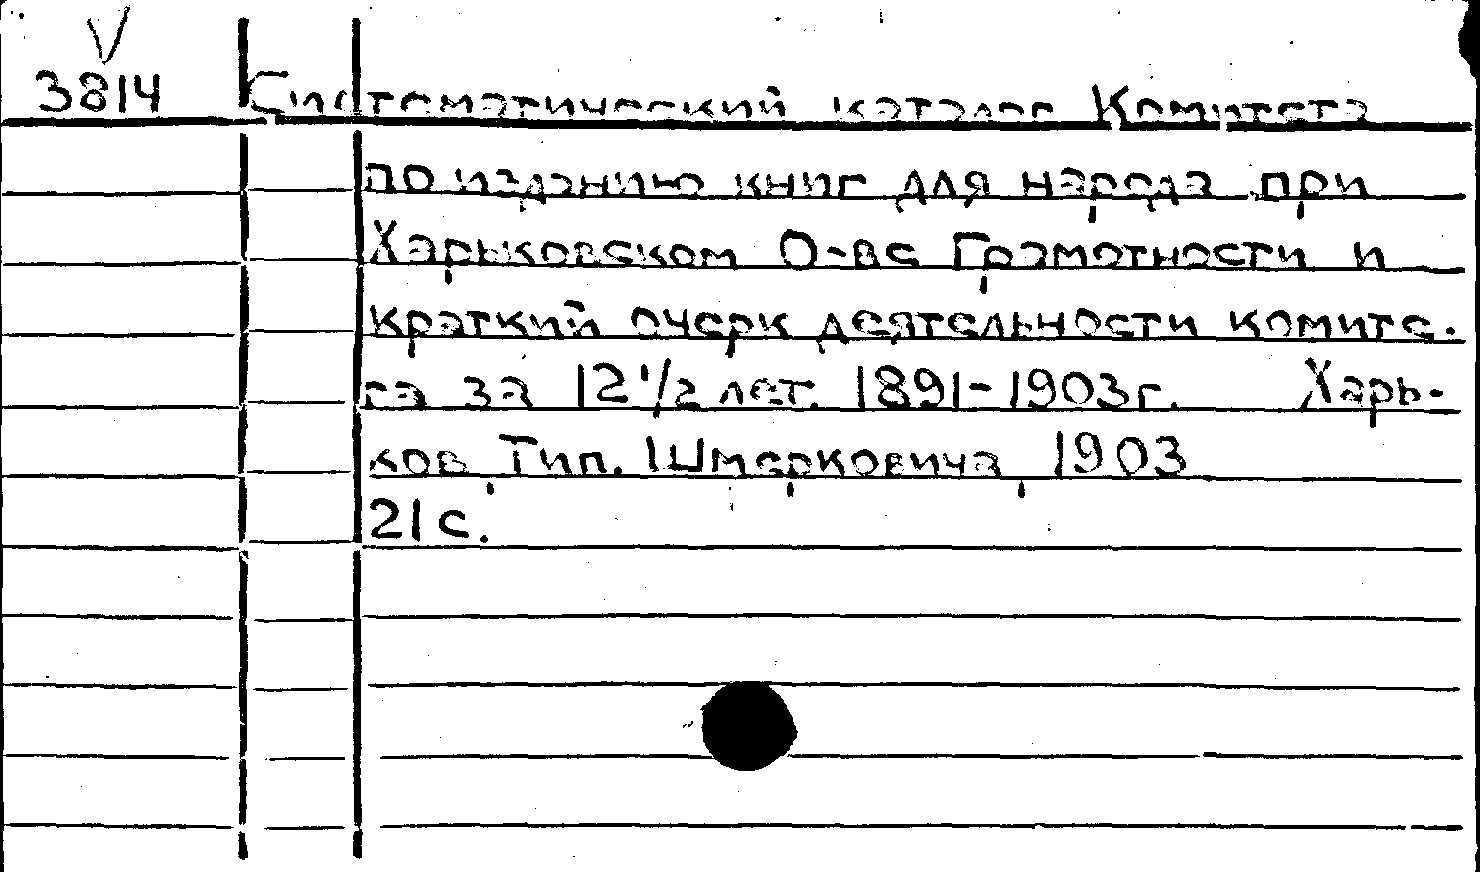 V
3814 Систематический каталог Комитета
по изданию книг для народа при
Харьковском О-ве Грамотности и
краткий очерк деятельности комите-
та за 12 1/2 лет. 1891-1903г. Харь-
ков, Тип. Шмерковича, 1903
21 с.